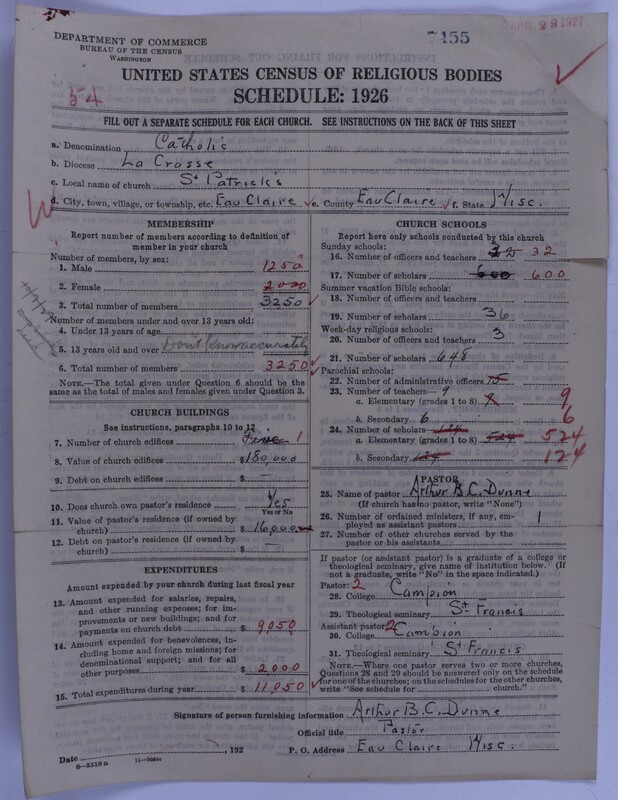 APR 29 1927
DEPARTMENT OF COMMERCE
BUREAU OF THE CENSUS
WASHINGTON
7455
UNITED STATES CENSUS OF RELIGIOUS BODIES
SCHEDULE: 1926
54
FILL OUT A SEPARATE SCHEDULE FOR EACH CHURCH. SEE INSTRUCTIONS ON THE BACK OF THIS SHEET
a. Denomination Catholic
b. Diocese La Crosse
c. Local name of church St Patrick's
d. City, town, village, or township, etc. Eau Claire e. County Eau Claire f. State Wisc.
MEMBERSHIP
Report number of members according to definition of member in your church
Number of members, by sex:
1. Male 1250
2. Female 2000
3. Total number of members 3250
Number of members under and over 13 years old:
4. Under 13 years of age
5. 13 years old and over Don't know accurately
6. Total number of members 3250
NOTE.—The total given under Question 6 should be the
same as the total of males and females given under Question 3.
CHURCH BUILDINGS
See instructions, paragraphs 10 to 12
7. Number of church edifices Five 1
8. Value of church edifices $180,000
9. Debt on church edifices $ —
10. Does church own pastor's residence? Yes
Yes or No
11. Value of pastor's residence (if owned by
church) $16,000
12. Debt on pastor's residence (if owned by
church) $ —
EXPENDITURES
Amount expended by your church during last fiscal year
13. Amount expended for salaries, repairs,
and other running expenses; for im-
provements or new buildings; and for
payments on church debt $ 9050
14. Amount expended for benevolences, in-
cluding home and foreign missions; for
denominational support; and for all
other purposes $ 2000
15. Total expenditures during year $ 11,050
CHURCH SCHOOLS
Report here only schools conducted by this church
Sunday schools:
16. Number of officers and teachers 32 32
17. Number of scholars 600 600
Summer vacation Bible schools:
18. Number of officers and teachers
19. Number of scholars 36
Week-day religious schools:
20. Number of officers and teachers 3
21. Number of scholars 648
Parochial schools:
22. Number of administrative officers
23. Number of teachers— 9
a. Elementary (grades 1 to 8) 9
b. Secondary 6 6
24. Number of scholars—
a. Elementary (grades 1 to 8) 524 524
b. Secondary 124 124
PASTOR
25. Name of pastor Arthur B.C. Dunne
(If church has no pastor, write "None")
26. Number of ordained ministers, if any, em-
ployed as assistant pastors 1
27. Number of other churches served by the
pastor or his assistants
If pastor (or assistant pastor) is a graduate of a college or
theological seminary, give name of institution below. (If
not a graduate, write "No" in the space indicated.)
Pastor: 2
28. College Campion
29. Theological seminary St Francis
Assistant pastor: 2
30. College Campion
31. Theological seminary St Francis
NOTE.—Where one pastor serves two or more churches,
Questions 28 and 29 should be answered only on the schedule
for one of the churches; on the schedules for the other churches,
write "See schedule for church."
Signature of person furnishing information Arthur B.C. Dunne
Official title Pastor
Date , 192 P. O. Address Eau Claire Wisc.